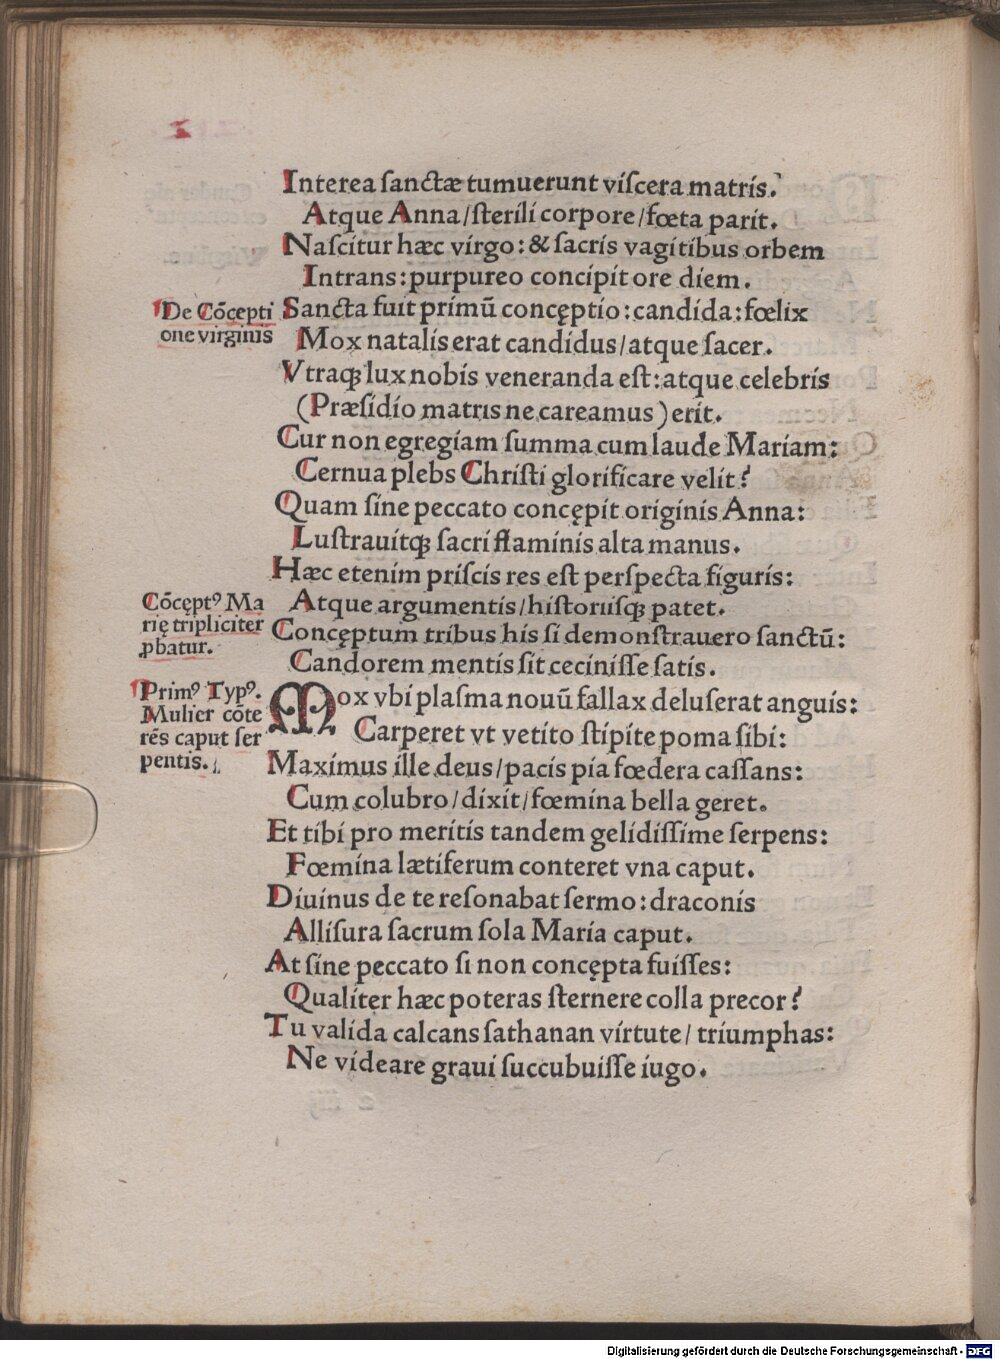 Interea sanctæ tumuerunt viscera matris.
Atque Anna/sterili corpore/fœta parit.
Nascitur hæc virgo: & sacris vagitibus orbem
Intrans: purpureo concipit ore diem.
De Cõcepti
one virginis
Sancta fuit primũ concęptio: candida: fœlix
Mox natalis erat candidus/atque sacer.
Vtraqꝫ lux nobis veneranda est: atque celebris
(Præsidio matris ne careamus) erit.
Cur non egregiam summa cum laude Mariam:
Cernua plebs Christi glorificare velit?
Quam sine peccato concępit originis Anna:
Lustrauitqꝫ sacri flaminis alta manus.
Hæc etenim priscis res est perspecta figuris:
Cõcęptꝰ Ma
rię tripliciter
ꝓbatur.
Atque argumentis/historiisqꝫ patet.
Concęptum tribus his si demonstrauero sanctũ:
Candorem mentis sit cecinisse satis.
Primꝰ Typꝰ.
Mulier cõte
rẽs caput ser
pentis.
Mox vbi plasma nouũ fallax deluserat anguis:
Carperet vt vetito stipite poma sibi:
Maximus ille deus/pacis pia fœdera cassans:
Cum colubro/dixit/fœmina bella geret.
Et tibi pro meritis tandem gelidissime serpens:
Fœmina lætiferum conteret vna caput.
Diuinus de te resonabat sermo: draconis
Allisura sacrum sola Maria caput.
At sine peccato si non concępta fuisses:
Qualiter hæc poteras sternere colla precor?
Tu valida calcans sathanan virtute/triumphas:
Ne videare graui succubuisse iugo.
Digitalisierung gefördert durch die Deutsche Forschungsgemeinschaft - DFG